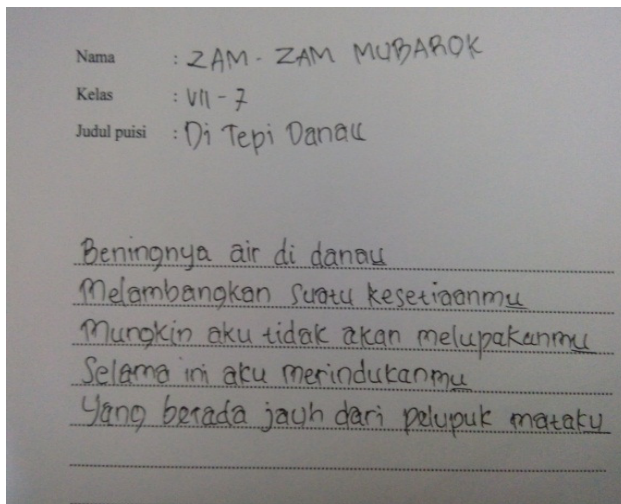 Nama : ZAM - ZAM MUBAROK
Kelas : VII - 7
Judul puisi : Di Tepi Danau
Beningnya air di danau
Melambangkan suatu kesetiaanmu
Mungkin aku tidak akan melupakanmu
Selama ini aku merindukanmu
Yang berada jauh dari pelupuk mataku